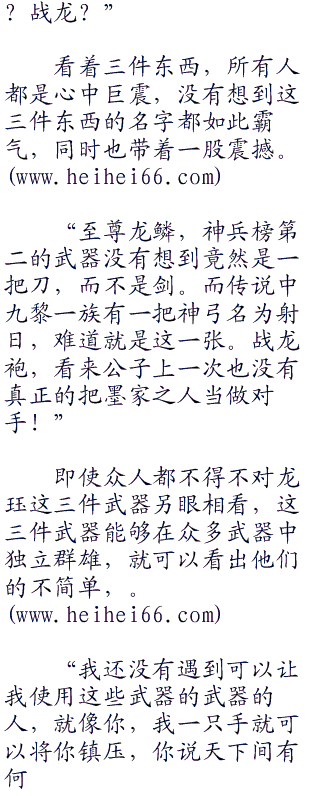 ？战龙？”
看着三件东西，所有人
都是心中巨震，没有想到这
三件东西的名字都如此霸
气，同时也带着一股震撼。
(www.heihei66.com)
“至尊龙鳞，神兵榜第
二的武器没有想到竟然是一
把刀，而不是剑。而传说中
九黎一族有一把神弓名为射
日，难道就是这一张。战龙
袍，看来公子上一次也没有
真正的把墨家之人当做对
手！”
即使众人都不得不对龙
珏这三件武器另眼相看，这
三件武器能够在众多武器中
独立群雄，就可以看出他们
的不简单，。
(www.heihei66.com)
“我还没有遇到可以让
我使用这些武器的武器的
人，就像你，我一只手就可
以将你镇压，你说天下间有
何